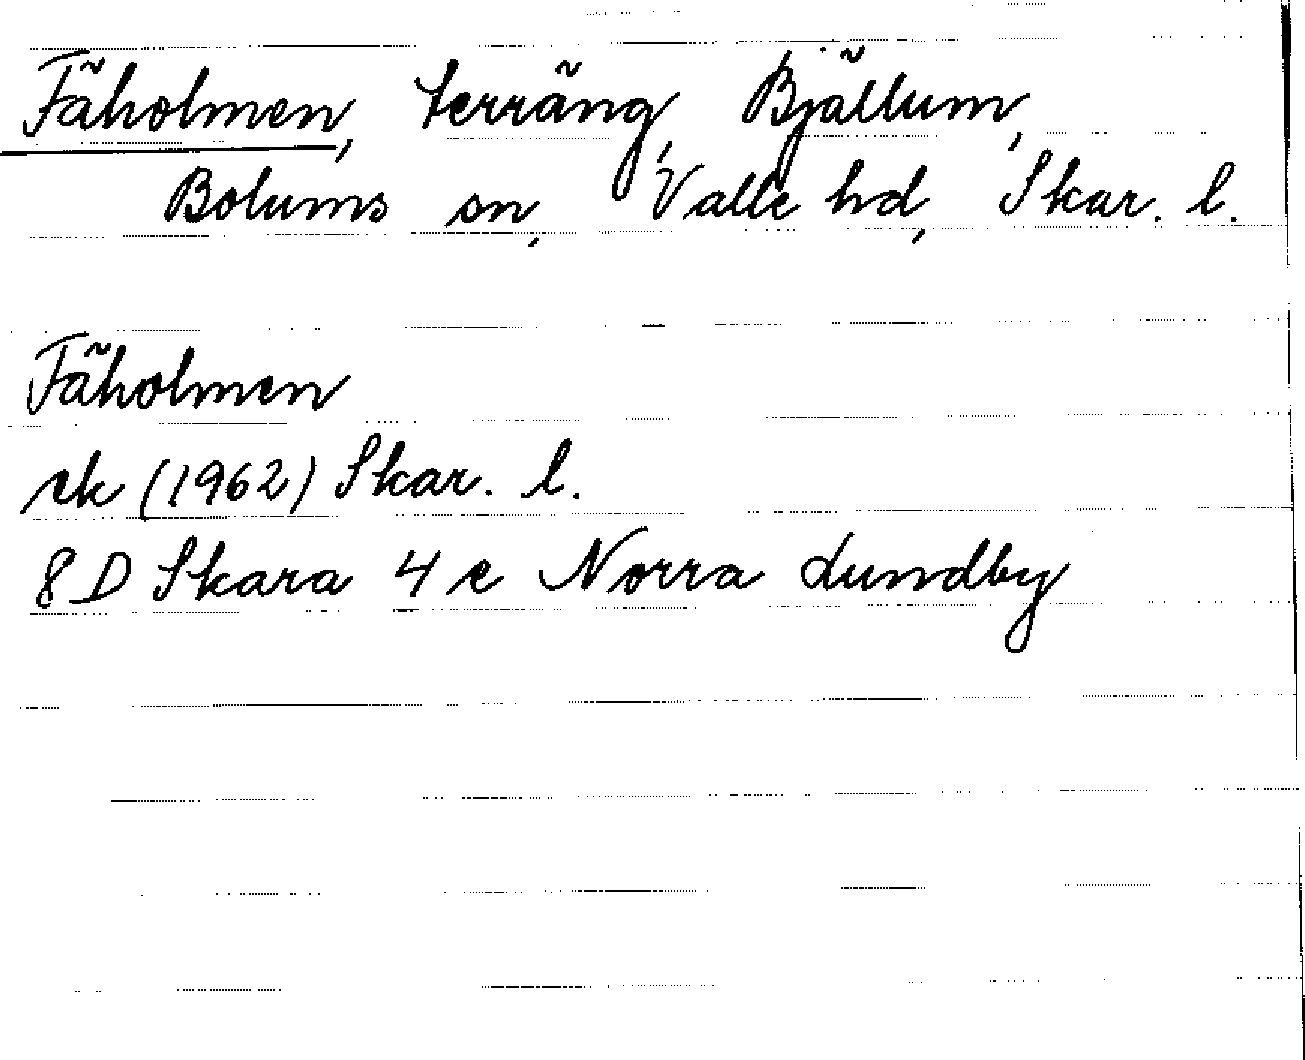 Fäholmen, terräng, Bjällum,
Bolums sn, Valle hd, Skar. l.
Fäholmen
ek (1962) Skar. l.
8 D Skara 4 e Norra Lundby